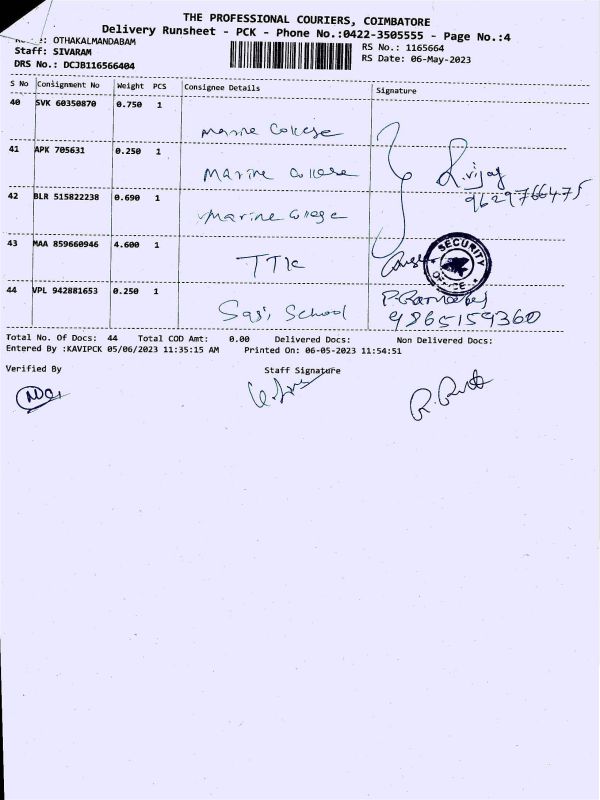 THE PROFESSIONAL COURIERS, COIMBATORE
Delivery Runsheet - PCK - Phone No.:0422-3505555 - Page No.:4
OTHAKALMANDABAM
RS No.: 1165664
Staff: SIVARAM
RS Date: 06-May-2023
DRS No.: DCJB116566404
S No Consignment No Weight PCS Consignee Details Signature
40 SVK 60350870 0.750 1
Marine College
41 APK 705631 0.250 1
Marine College
R.vijay
9629766475
42 BLR 515822238 0.690 1
Marine College
43 MAA 859660946 4.600 1
TTK
SECURITY OFFICE
44 VPL 942881653 0.250 1
Sasi School
9865159360
Total No. Of Docs: 44 Total COD Amt: 0.00 Delivered Docs: Non Delivered Docs:
Entered By :KAVIPCK 05/06/2023 11:35:15 AM Printed On: 06-05-2023 11:54:51
Verified By Staff Signature